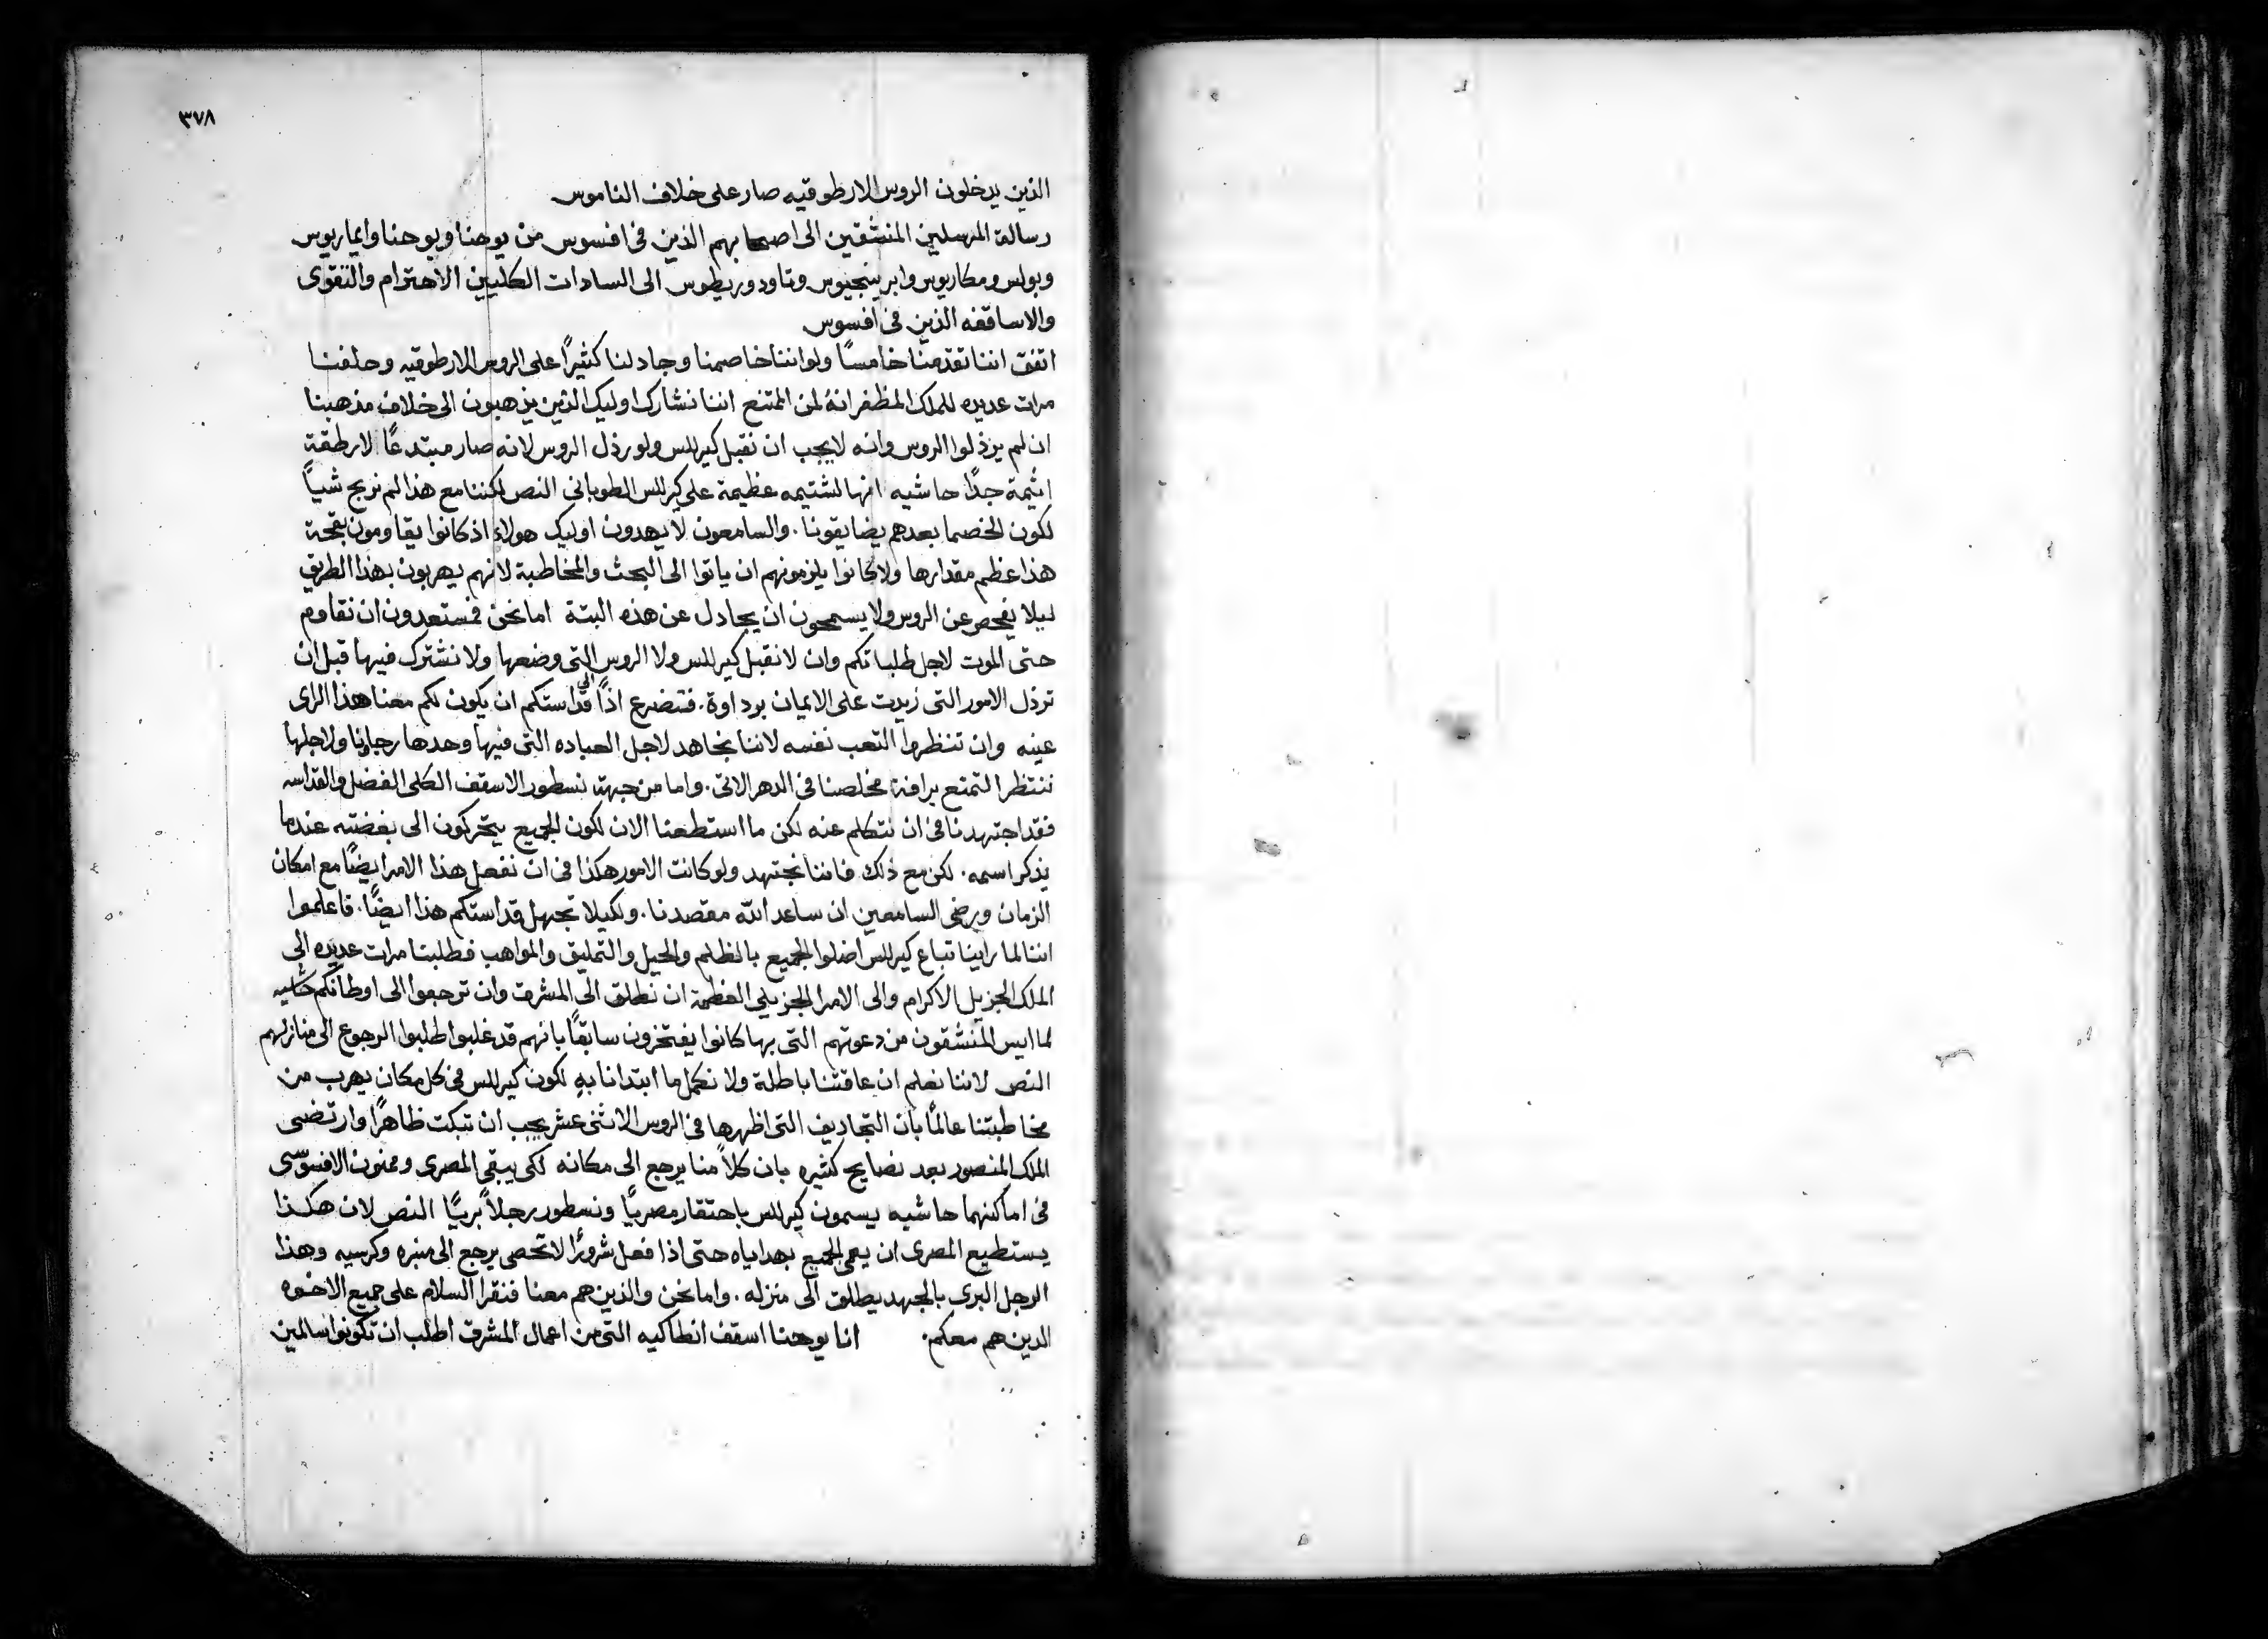 ٣٧٨
الذين يدخلون الروس الارطوقيه صار على خلاف الناموس
رسالة المرسلين المنشقين الى اصحابهم الذين فى افسوس من يوحنا ويوحنا وايماريوس
وبولس ومكاريوس وابرينجيوس وتاودوريطوس الى السادات الكليين الاحترام والتقوى
والاساقفه الذين فى افسوس
اتفق اننا تقدمنا خامسًا ولو اننا خاصمنا وجادلنا كثيرًا على الروس الارطوقيه وحلفنا
مرات عديده للملك المظفر انه لمن الممتنع اننا نشارك اوليك الذين يذهبون الى خلاف مذهبنا
ان لم يرذلوا الروس وانه لا يجب ان نقبل كيرللس ولو رذل الروس لانه صار مبتدعًا لارطقة
اثيمة جدًا حاشيه انها لشتيمه عظيمة على كيرللس الطوبانى النص لكننا مع هذا لم نربح شيًا
لكون الخصما بعدهم يضايقونا. والسامعون لا يهدون اوليك هولاء اذ كانوا يقاومون بقحة
هذا عظم مقدارها ولا كانوا يلزمونهم ان ياتوا الى البحث والمخاطبة لانهم يهربون بهذا الطريق
ليلا يفحص عن الروس ولا يسمحون ان يجادل عن هذه البتة اما نحن فمستعدون ان نقاوم
حتى الموت لاجل طلباتكم وان لا نقبل كيرللس ولا الروس التى وضعها ولا نشترك فيها قبل ان
ترذل الامور التى زيدت على الايمان برداوة. فنتضرع اذًا الى قداستكم ان يكون لكم معنا هذا الراى
عينه وان تنظروا التعب نفسه لاننا نجاهد لاجل العباده التى فيها وحدها رجاونا ولاجلها
ننتظر التمتع برافة مخلصنا فى الدهر الاتى. واما من جهة نسطور الاسقف الكلى الفضل والقداسه
فقد اجتهدنا فى ان نتكلم عنه لكن ما استطعنا الان لكون الجميع يتحركون الى بغضته عندما
يذكر اسمه. لكن مع ذلك فاننا نجتهد ولو كانت الامور هكذا فى ان نفعل هذا الامر ايضًا مع امكان
الزمان ورضى السامعين ان ساعد الله مقصدنا. ولكيلا تجهل قداستكم هذا ايضًا. فاعلموا
اننا لما راينا تباع كيرللس اضلوا الجميع بالظلم والحيل والتمليق والمواهب فطلبنا مرات عديده الى
الملك الجزيل الاكرام والى الامرا الجزيلى العظمة ان نطلق الى المشرق وان ترجعوا الى اوطانكم حاشيه
لما ايس المنشقون من دعوتهم التى بها كانوا يفتخرون سابقًا بانهم قد غلبوا طلبوا الرجوع الى منازلهم
النص لاننا نعلم ان عاقتنا باطلة ولا نكمل ما ابتدانا به لكون كيرللس فى كل مكان يهرب من
مخاطبتنا عالمًا بان التجاديف التى اظهرها فى الروس الاثنى عشر يجب ان تبكت ظاهرًا وارتضى
الملك المنصور بعد نصايح كثيره بان كلاً منا يرجع الى مكانه لكى يبقى المصرى وممنون الافسوسى
فى اماكنهما حاشيه يسمون كيرللس باحتقار مصريًا ونسطور رجلاً بريًا النص لان هكذا
يستطيع المصرى ان يعمى الجميع بهداياه حتى اذا فعل شرورًا لا تحصى يرجع الى منبره وكرسيه وهذا
الرجل البرى بالجهد يطلق الى منزله. واما نحن والذين هم معنا فنقرا السلام على جميع الاخوه
الدين هم معكم. انا يوحنا اسقف انطاكيه التى من اعمال المشرق اطلب ان تكونوا سالمين